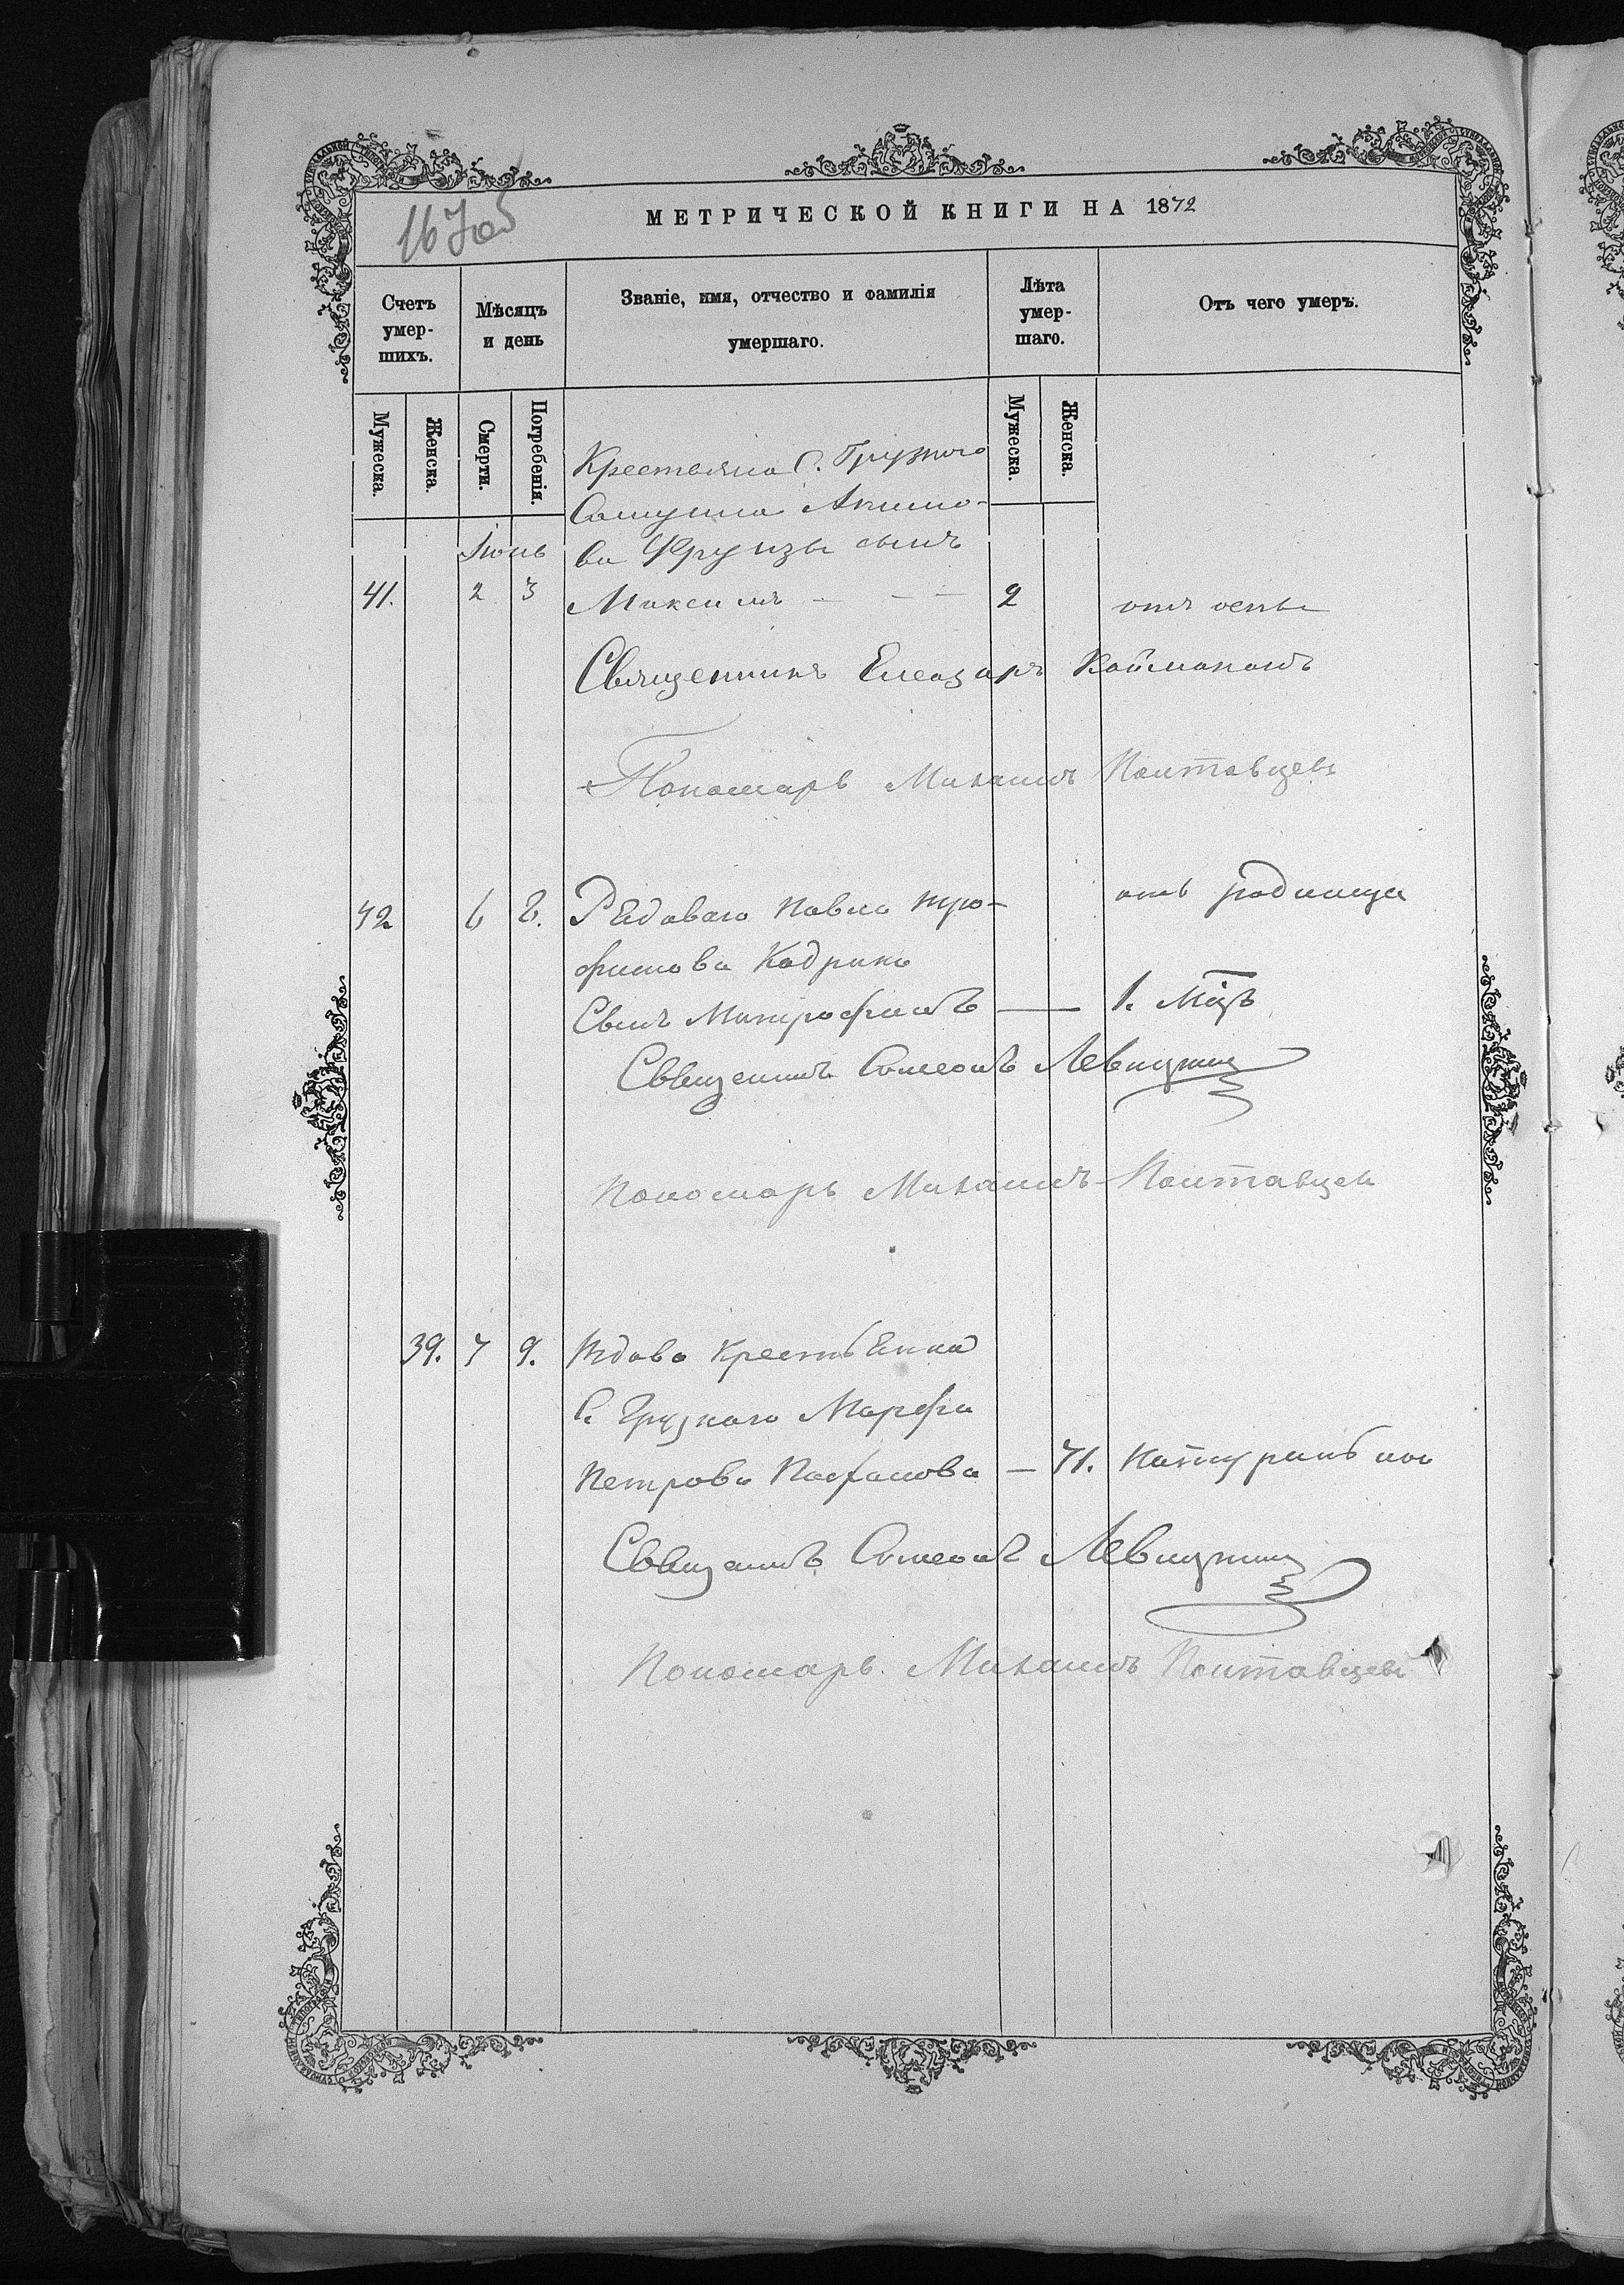 МЕТРИЧЕСКОЙ КНИГИ НА 1872
Счетъ умер- шихъ.
Мѣсяцъ и день
Званіе, имя, отчество и фамилія умершаго.
Лѣта умер- шаго.
Отъ чего умеръ.
Мужеска. Женска. Смерти. Погребенія. Мужеска. Женска.
Крестьяна С. Грузкого
Акимо-
Іюнь ва Фрунзы сынъ
41. 2 3 Максимъ - - - 2 отъ оспы
Священникъ Елеазаръ
Пономарь Михаилъ Полтавцевъ
42 6 8. Рядоваго Павла Тро-
фимова Кадрина отъ родимца
Сынъ Митрофанъ — 1. Мцъ
Священникъ Симеонъ Левицкий
Пономарь Михаилъ Полтавцев
39. 7 9. Вдова Крестьянка
С. Грузкаго Марфа
Петрова — 71. Натурально
Священникъ Симеонъ Левицкий
Пономарь. Михаилъ Полтавцевъ